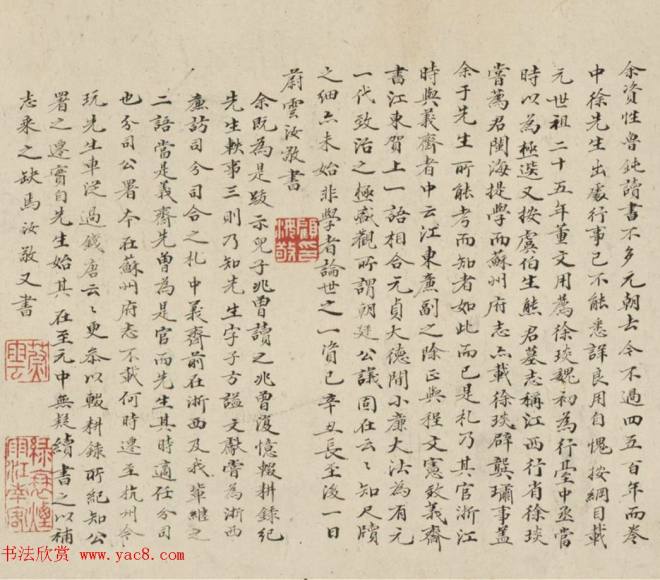 余資性魯鈍讀書不多元朝去今不過四五百年而卷
中徐先生出處行事已不能悉詳良用自愧按綱目載
元世祖二十五年董文用薦徐琰魏初為行臺中丞當
時以為極選又按虞伯生熊君墓志稱江西行省徐琰
嘗薦君閩海提學而蘇州府志亦載徐琰辟龔璛事蓋
余于先生所能考而知者如此而已是札乃其官浙江
時與義齋者中云江東廉副之除正與程文憲致義齋
書江東賀上一語相合元貞大德間小廉大法為有元
一代致治之極盛觀所謂朝廷公議固在云云知尺牘
之細亦未始非學者論世之一資已辛丑長至後一日
蔚雲汝敬書
余既為是跋示兒子兆曾讀之兆曾復憶輟耕錄紀
先生軼事三則乃知先生字子方謚文獻嘗為浙西
廉訪司分司令之札中義齋前在浙西及我輩繼之
二語當是義齋先曾為是官而先生其時適任分司
也分司公署本在蘇州府志不載何時遷至杭州今
玩先生車從過錢唐云云更參以輟耕錄所紀知公
署之遷實自先生始其在至元中無疑續書之以補
志乘之缺焉汝敬又書
顧印汝敬
蔚雲
書法欣赏 www.yac8.com